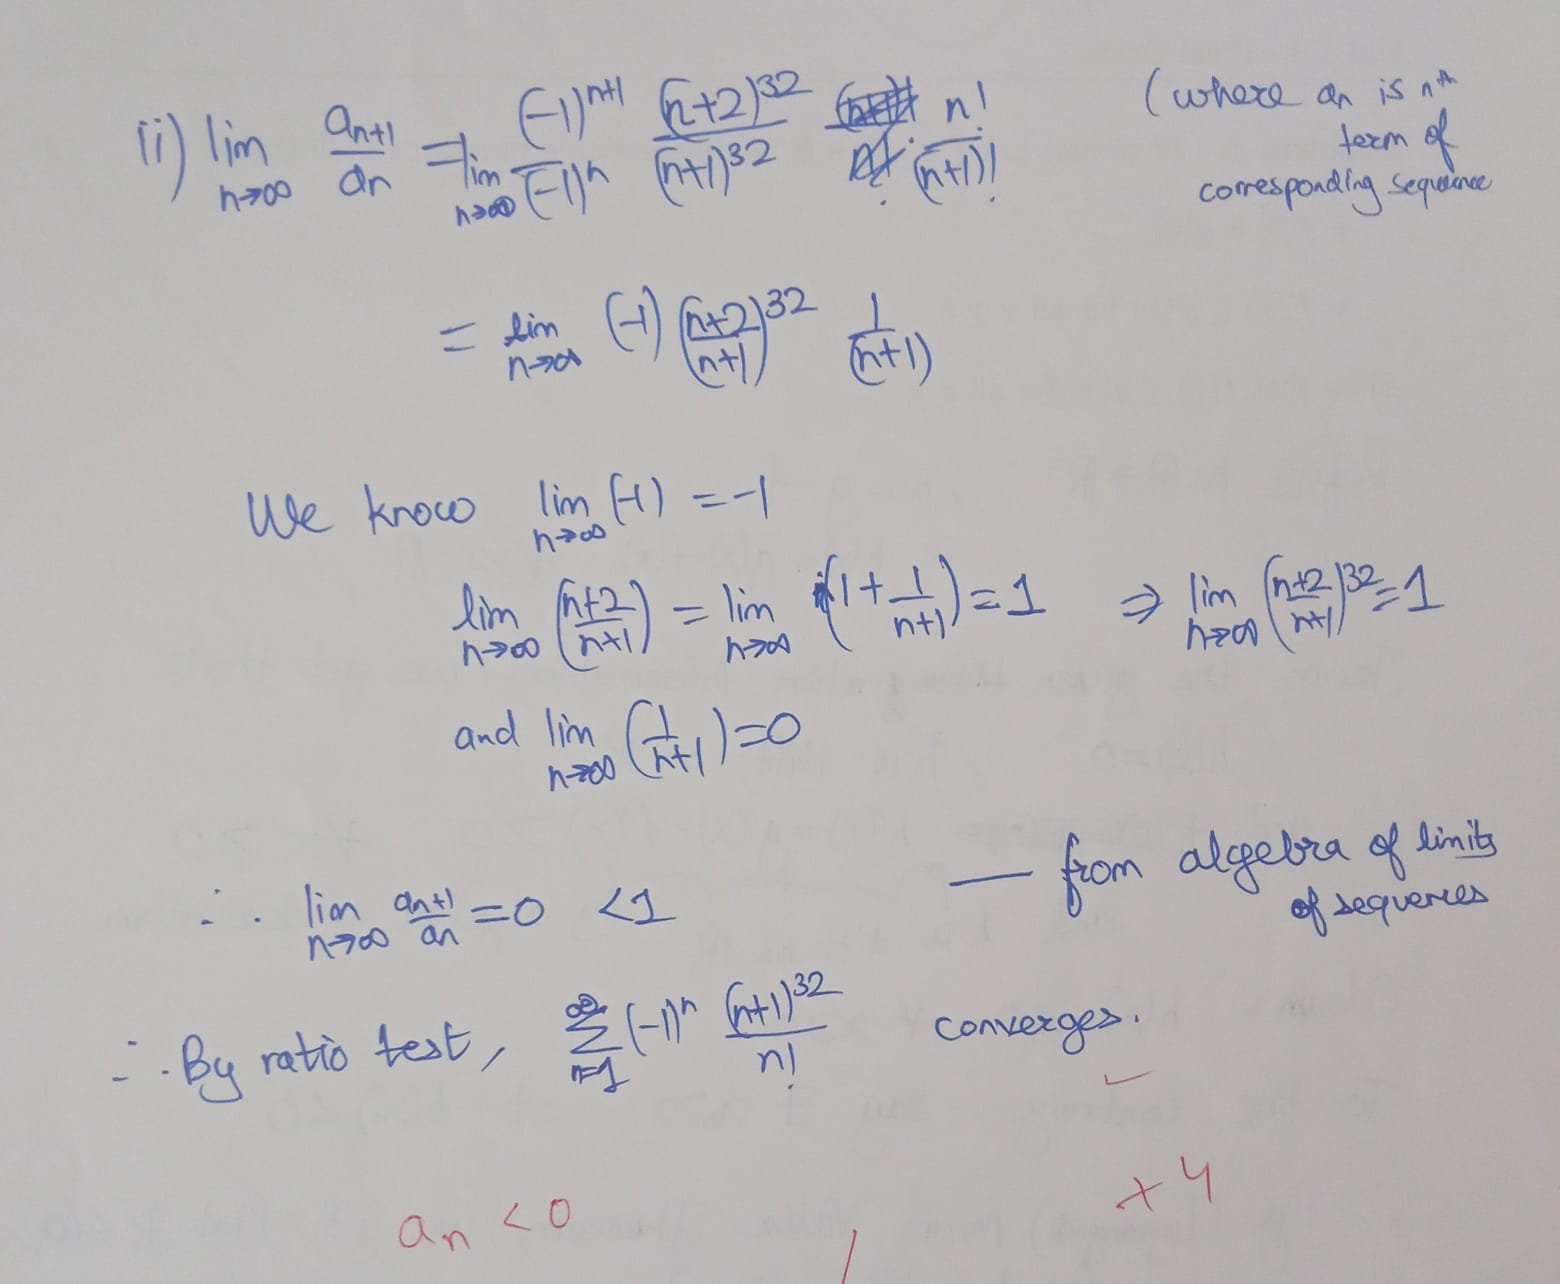 ii) lim n→∞ aₙ₊₁/aₙ = lim n→∞ (-1)ⁿ⁺¹/(-1)ⁿ (n+2)³²/(n+1)³² · n!/(n+1)! (where aₙ is nᵗʰ
term of
corresponding sequence
= lim n→∞ (-1) ((n+2)/(n+1))³² 1/(n+1)
We know lim n→∞ (-1) = -1
lim n→∞ ((n+2)/(n+1)) = lim n→∞ (1 + 1/(n+1)) = 1 ⇒ lim n→∞ ((n+2)/(n+1))³² = 1
and lim n→∞ (1/(n+1)) = 0
∴ lim n→∞ aₙ₊₁/aₙ = 0 < 1 — from algebra of limits
of sequences
∴ By ratio test, ∞ Σ n=1 (-1)ⁿ (n+1)³²/n! converges.
+4
aₙ < 0